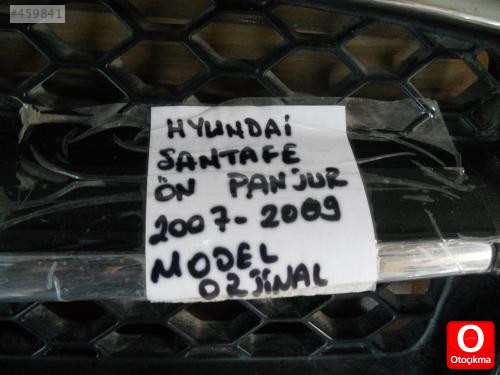 #459841
HYUNDAİ
SANTAFE
ÖN PANJUR
2007-2009
MODEL
ORJİNAL
Otoçıkma